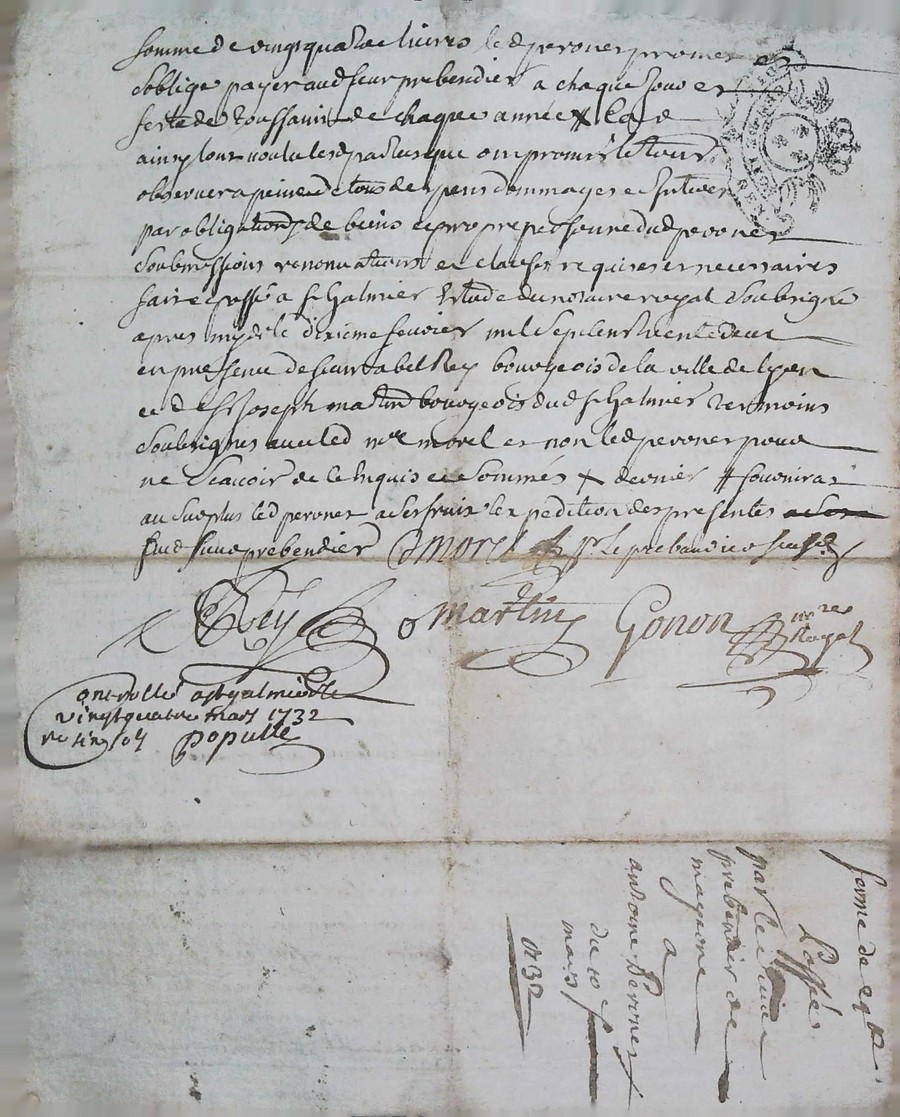 somme de vingt quatre livres led peronet promet et
soblige payer aud sieur prebendier a chaque jour et
feste de toussaint de chaque année
ainsy tout voulu lesd parties que ont promis le tout
observer a peine de tous despens dommages et
par obligation de biens et propre personne dud peronet
soubmissions renonciations et clauses requises et necessaires
faict et passé a st galmier estude du notaire royal soubsigné
apres mydi le dixieme fevrier mil sept cent trente deux
en presence de sieur abel Rey bourgeois de la ville de lyon
et de sr joseph martin bourgeois dud st galmier temoins
soubsignes avec led mre morel et non led peronet pour
ne scavoir de ce enquis et sommés x dernier # fournira
au surplus led peronet a ses frais lexpedition des presentes
aud sieur prebendier Morel
Rey Martin Gonon nre Royal
Controllé a st galmier le
vingt quatre mars 1732
populle
ferme de
Passé
par le sieur
prebendier de
magnine
a
antoine Peronet
du 10
mars
1732